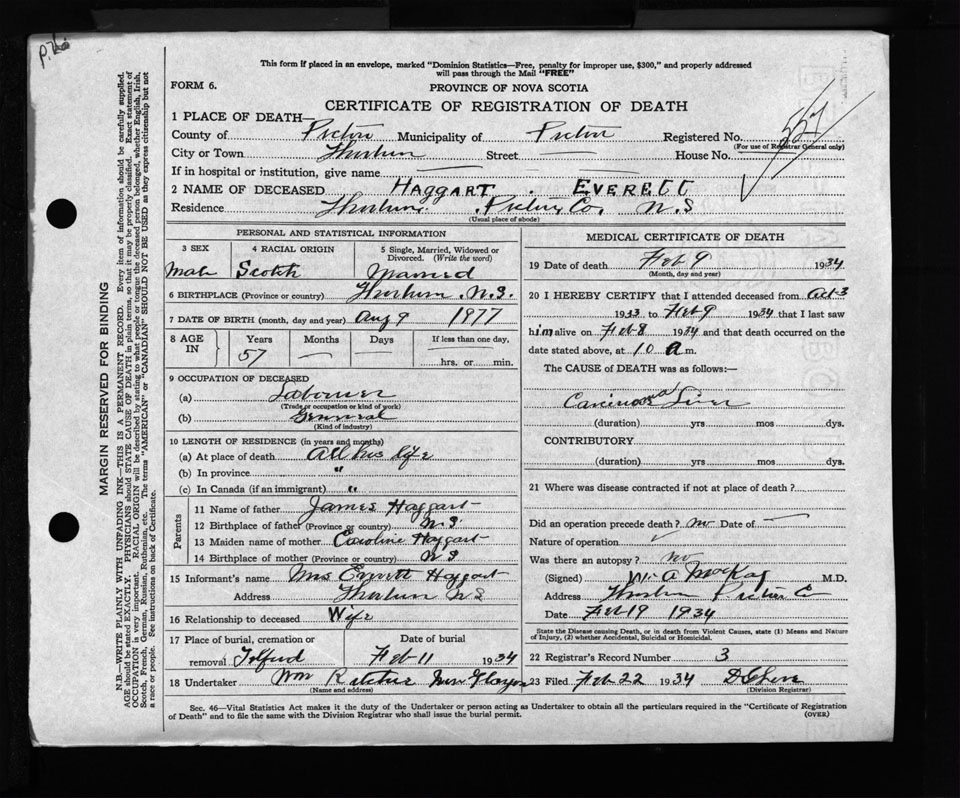 P. 26
This form if placed in an envelope, marked "Dominion Statistics—Free, penalty for improper use, $300," and properly addressed
will pass through the Mail "FREE"
FORM 6.
PROVINCE OF NOVA SCOTIA
CERTIFICATE OF REGISTRATION OF DEATH
1 PLACE OF DEATH—
County of Pictou Municipality of Pictou Registered No. 557
(For use of Registrar General only)
City or Town Thorburn Street — House No. —
If in hospital or institution, give name —
2 NAME OF DECEASED HAGGART . EVERETT
Residence Thorburn. Pictou Co. N.S
(Usual place of abode)
PERSONAL AND STATISTICAL INFORMATION
3 SEX 4 RACIAL ORIGIN 5 Single, Married, Widowed or
Divorced. (Write the word)
Male Scotch Married
6 BIRTHPLACE (Province or country) Thorburn. N.S.
7 DATE OF BIRTH (month, day and year) Aug 9 1977
8 AGE IN Years Months Days If less than one day,
57 — — hrs. or min.
9 OCCUPATION OF DECEASED
(a) Labourer
(Trade or occupation or kind of work)
(b) General
(Kind of industry)
10 LENGTH OF RESIDENCE (in years and months)
(a) At place of death All his life
(b) In province "
(c) In Canada (if an immigrant) "
Parents
11 Name of father James Haggart
12 Birthplace of father (Province or country) N.S.
13 Maiden name of mother Caroline Haggart
14 Birthplace of mother (Province or country) N S
15 Informant's name Mrs Everett Haggart
Address Thorburn N S
16 Relationship to deceased Wife
17 Place of burial, cremation or Date of burial
removal Telford Feb 11 1934
18 Undertaker Wm Ritchie New Glasgow
(Name and address)
MEDICAL CERTIFICATE OF DEATH
19 Date of death Feb 9 1934
(Month, day and year)
20 I HEREBY CERTIFY that I attended deceased from Oct 3
1933 to Feb 9 1934 that I last saw
him alive on Feb 8 1934 and that death occurred on
date stated above, at 10 a m.
The CAUSE of DEATH was as follows:—
Carcinoma Liver
(duration) yrs mos dys.
CONTRIBUTORY
(duration) yrs mos dys.
21 Where was disease contracted if not at place of death?
Did an operation precede death? no Date of —
Nature of operation
Was there an autopsy? no
(Signed) W. A MacKay M.D.
Address Thorburn Pictou C
Date Feb 19 1934
State the Disease causing Death, or in death from Violent Causes, state (1) Means and Nature
of Injury, (2) whether Accidental, Suicidal or Homicidal.
22 Registrar's Record Number 3
23 Filed Feb 22 1934
(Division Registrar)
Sec. 46—Vital Statistics Act makes it the duty of the Undertaker or person acting as Undertaker to obtain all the particulars required in the "Certificate of Registration
of Death" and to file the same with the Division Registrar who shall issue the burial permit.
(OVER)
MARGIN RESERVED FOR BINDING
N.B.—WRITE PLAINLY WITH UNFADING INK—THIS IS A PERMANENT RECORD. Every item of information should be carefully supplied.
AGE should be stated EXACTLY. PHYSICIANS should STATE CAUSE OF DEATH in plain terms, so that it may be properly classified. Exact statement of
OCCUPATION is very important. RACIAL ORIGIN will be described by stating to what people or tongue the deceased person belonged, whether English, Irish,
Scotch, French, German, Russian, Ruthenian, etc. The terms "AMERICAN" or "CANADIAN" SHOULD NOT BE USED as they express citizenship but not
a race or people. See instructions on back of Certificate.